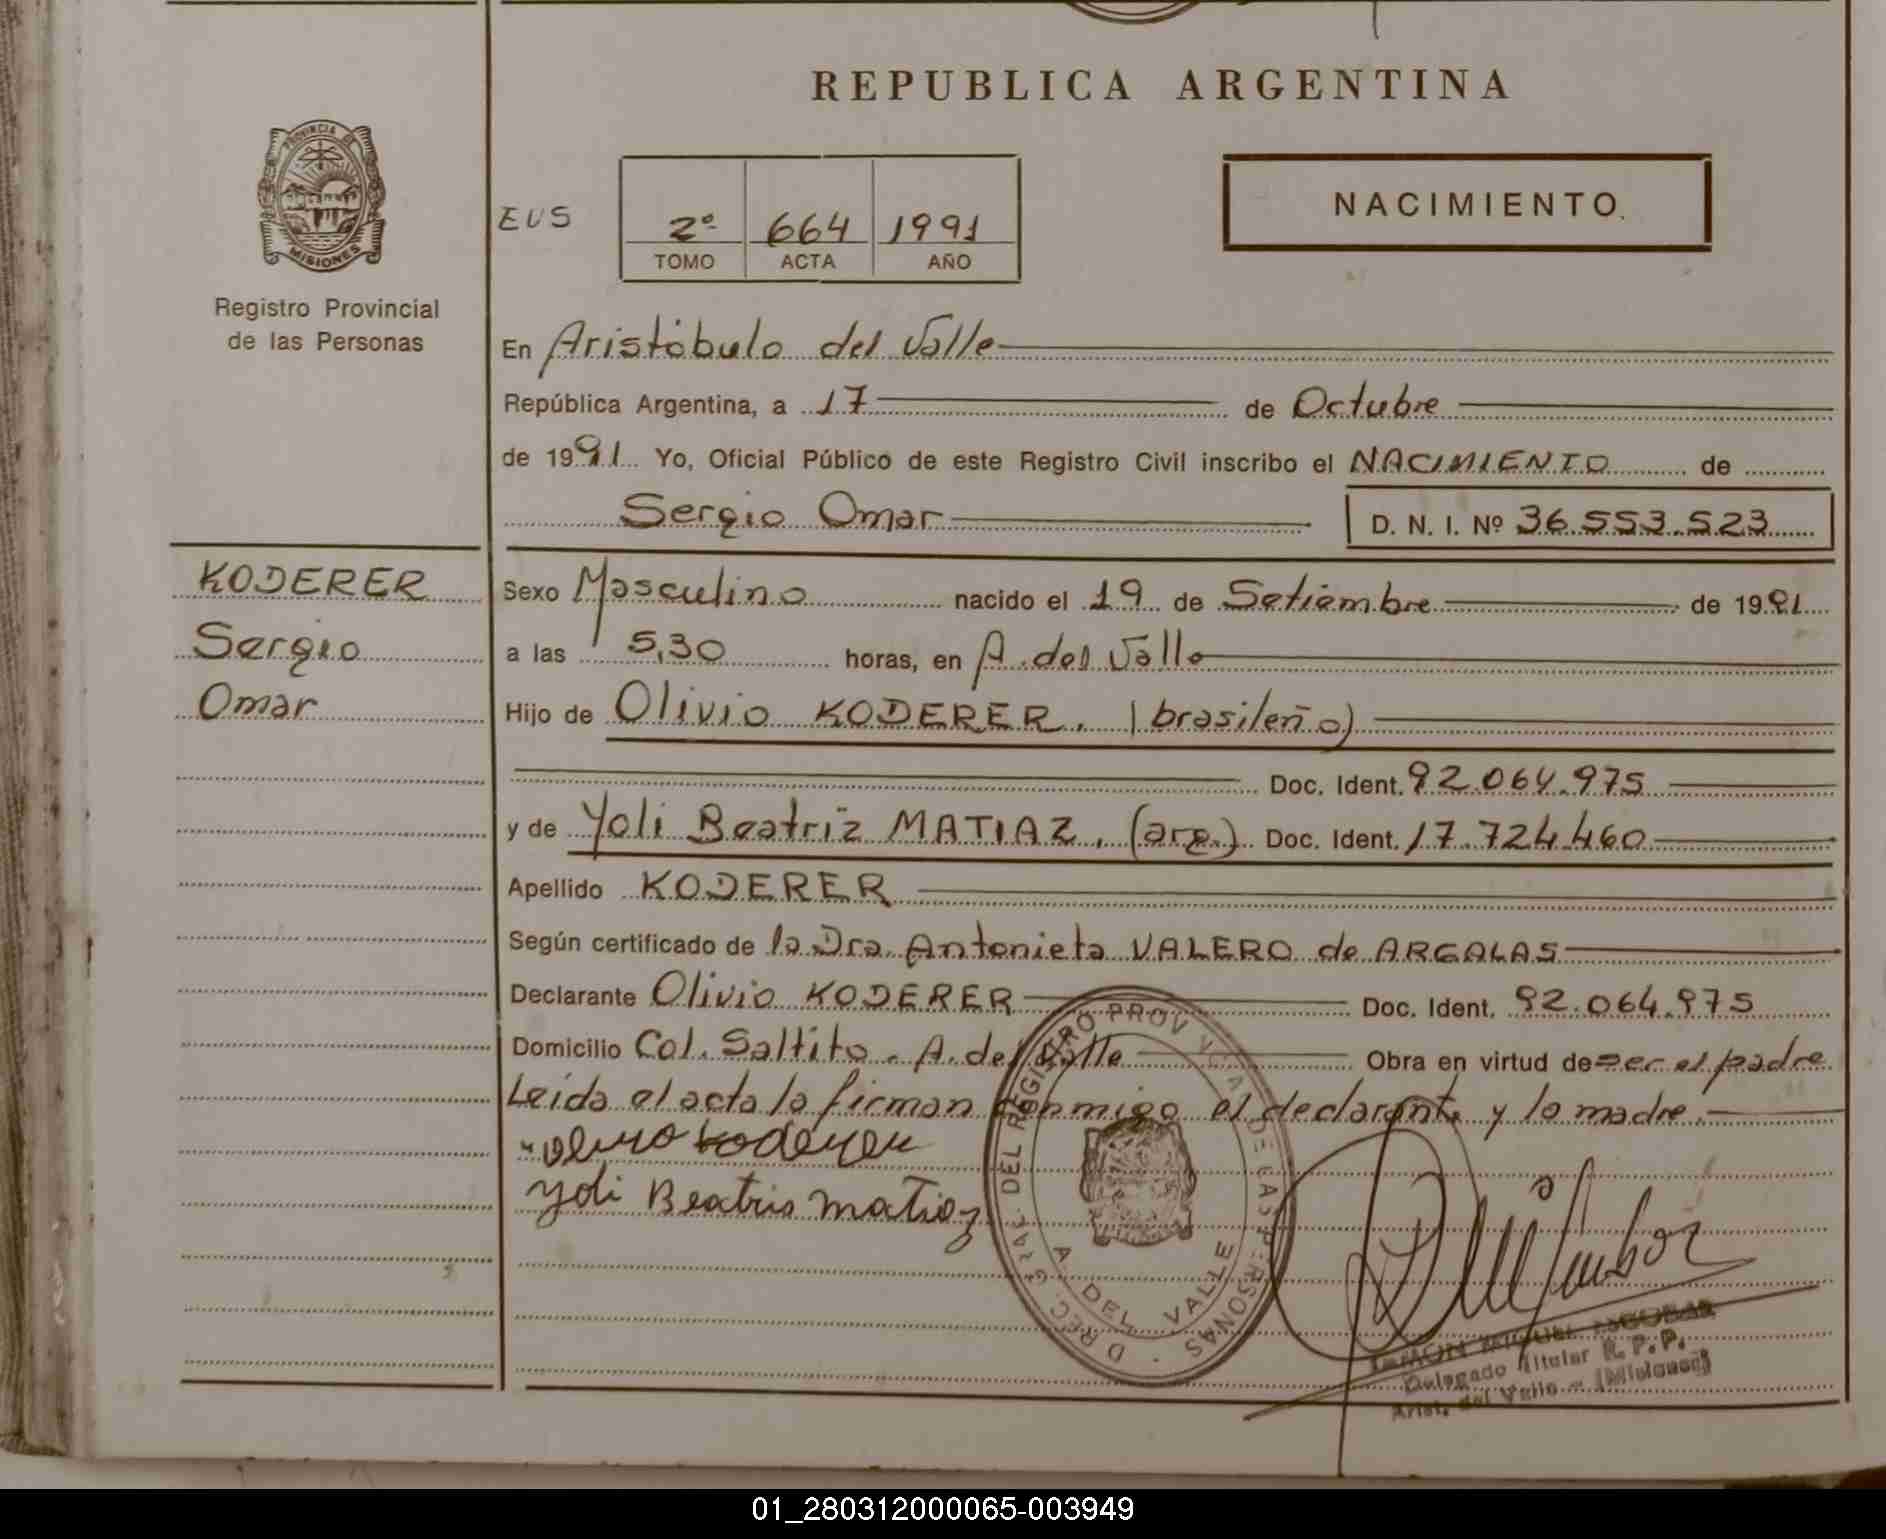 REPUBLICA ARGENTINA
PROVINCIA DE
MISIONES
Registro Provincial
de las Personas
EUS
2º 664 1991
TOMO ACTA AÑO
NACIMIENTO.
En Aristóbulo del Valle
República Argentina, a 17 de Octubre
de 1991 Yo, Oficial Público de este Registro Civil inscribo el NACIMIENTO de
Sergio Omar D. N. I. Nº 36.553.523
KODERER
Sergio
Omar
Sexo Masculino nacido el 19 de Setiembre de 1991
a las 5,30 horas, en A. del Valle
Hijo de Olivio KODERER. (brasileño)
Doc. Ident. 92.064.975
y de Yoli Beatriz MATIAZ. (arg.) Doc. Ident. 17.724.460
Apellido KODERER
Según certificado de la Dra. Antonieta VALERO de ARGALAS
Declarante Olivio KODERER Doc. Ident. 92.064.975
Domicilio Col. Saltito. A. del Valle Obra en virtud de ser el padre
Leida el acta la firman conmigo el declarante y la madre.
Koderer
Yoli Beatris Matiaz
DEL REGISTRO PROV DE LAS PERSONAS
A. DEL VALLE
ESCOBAR
Delegado Titular R. P. P.
Arist. del Valle - (Misiones)
01_280312000065-003949